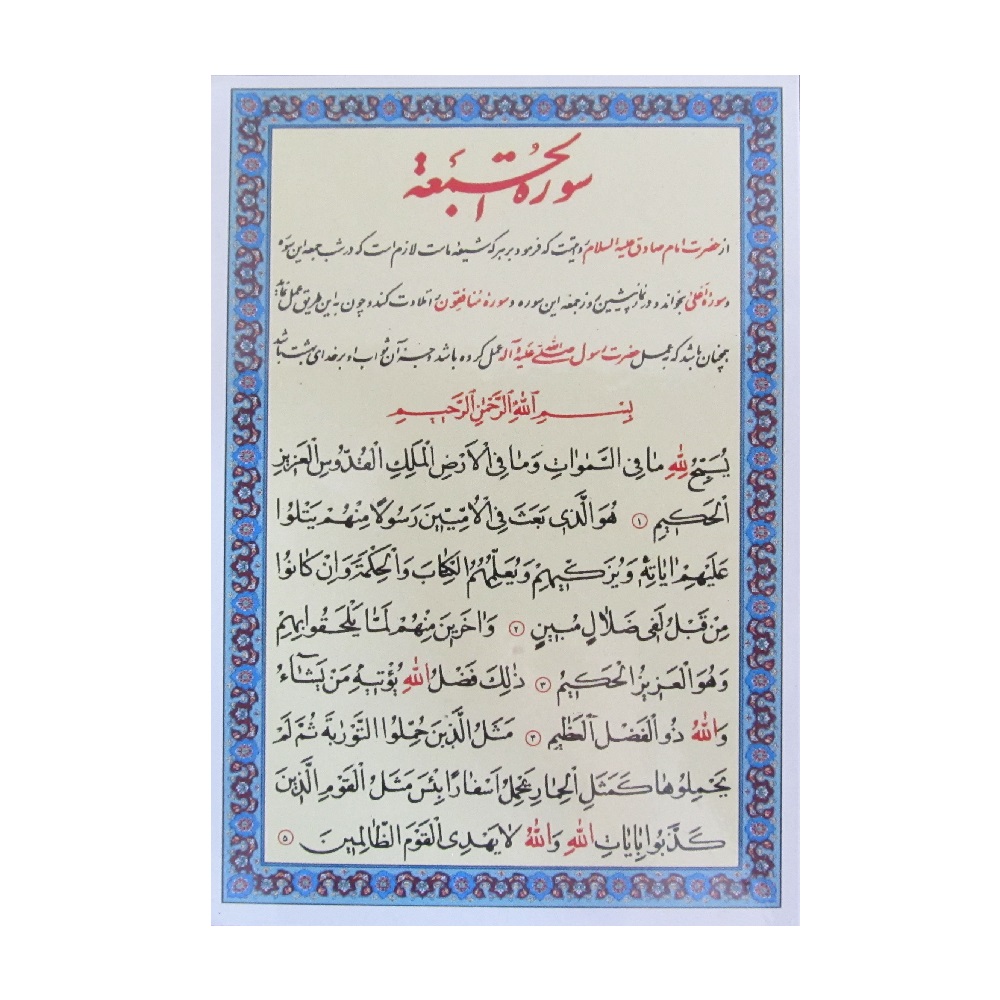 سورة الجمعة
از حضرت امام صادق علیه السلام روایتست که فرمود بر هر که شیعه ماست لازم است که در شب جمعه این سوره
و سورهٔ اعلی بخواند و در نماز پیشین روز جمعه این سوره و سورهٔ منافقون را تلاوت کند و چون به این طریق عمل نماید
همچنان باشد که به عمل حضرت رسول صلی الله علیه و آله عمل کرده باشد و جزای آن ثواب او بر خدای بهشت باشد
بِسْمِ اللهِ الرَّحْمٰنِ الرَّحيمِ
يُسَبِّحُ لِلّٰهِ مَا فِى السَّمٰوَاتِ وَمَا فِى الْاَرْضِ الْمَلِكِ الْقُدُّوسِ الْعَزيزِ
الْحَكيمِ ۱ هُوَ الَّذى بَعَثَ فِى الْاُمِّيّينَ رَسُولًا مِنْهُمْ يَتْلُوا
عَلَيْهِمْ اٰيَاتِه۪ وَيُزَكّيهِمْ وَيُعَلِّمُهُمُ الْكِتَابَ وَالْحِكْمَةَ وَاِنْ كَانُوا
مِنْ قَبْلُ لَفى ضَلَالٍ مُبينٍ ۲ وَاٰخَرينَ مِنْهُمْ لَمَّا يَلْحَقُوا بِهِمْ
وَهُوَ الْعَزيزُ الْحَكيمُ ۳ ذٰلِكَ فَضْلُ اللهِ يُؤْتيهِ مَنْ يَشَآءُ
وَاللهُ ذُو الْفَضْلِ الْعَظيمِ ۴ مَثَلُ الَّذينَ حُمِّلُوا التَّوْرٰيةَ ثُمَّ لَمْ
يَحْمِلُوهَا كَمَثَلِ الْحِمَارِ يَحْمِلُ اَسْفَارًا بِئْسَ مَثَلُ الْقَوْمِ الَّذينَ
كَذَّبُوا بِاٰيَاتِ اللهِ وَاللهُ لَا يَهْدِى الْقَوْمَ الظَّالِمينَ ۵